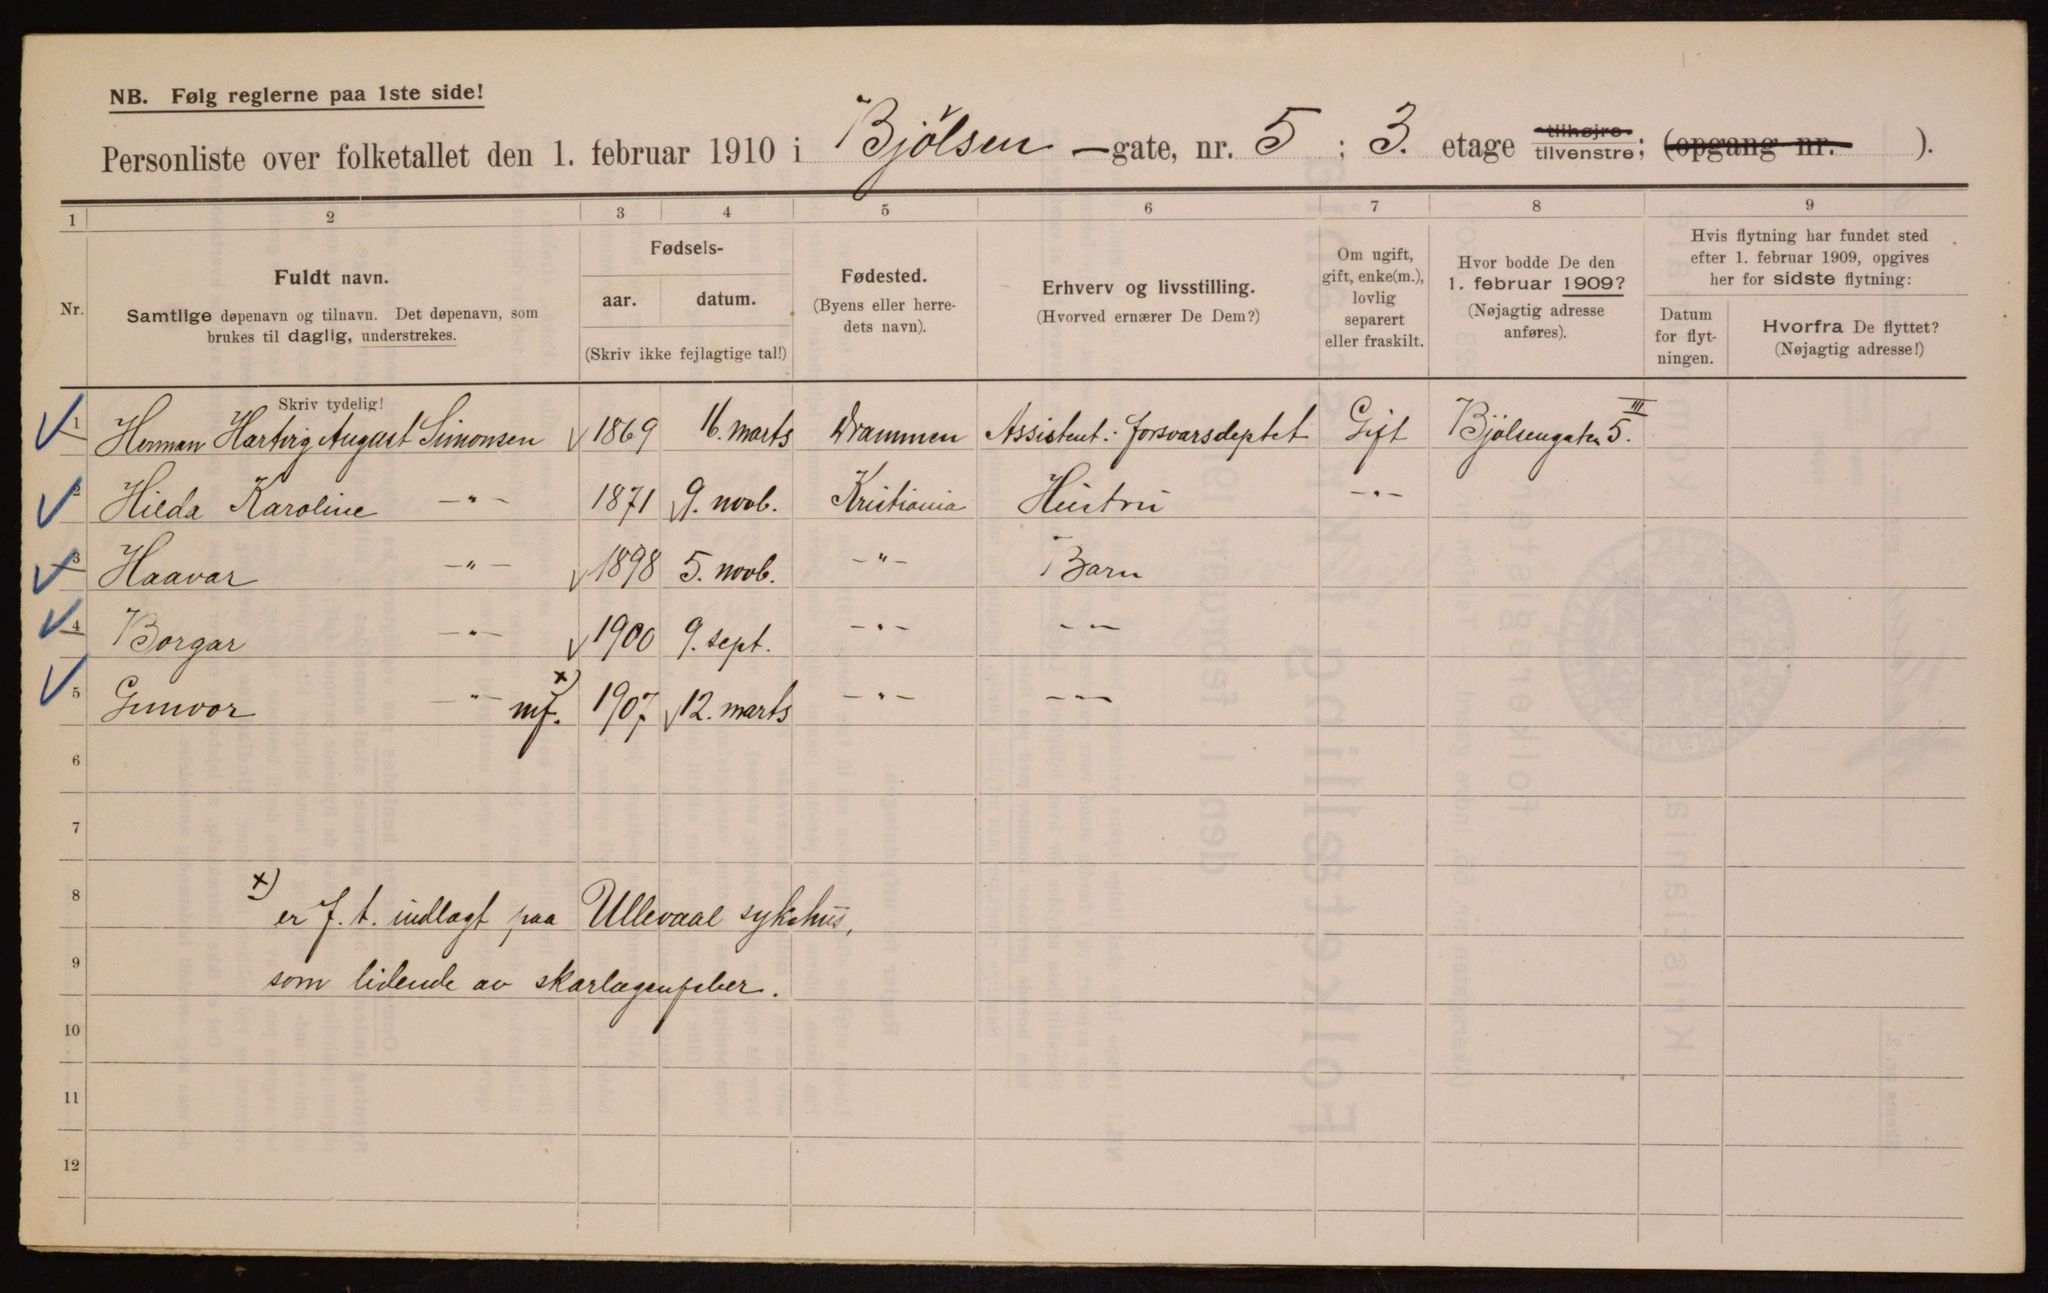 NB. Følg reglerne paa 1ste side!
Personliste over folketallet den 1. februar 1910 i Bjølsen -gate, nr. 5 ; 3. etage tilhøjre tilvenstre; (opgang nr. ).
1 2 3 4 5 6 7 8 9
Nr.
Fuldt navn.
Samtlige døpenavn og tilnavn. Det døpenavn, som
brukes til daglig, understrekes.
Skriv tydelig!
Fødsels-
aar. datum.
(Skriv ikke fejlagtige tal!)
Fødested.
(Byens eller herre-
dets navn).
Erhverv og livsstilling.
(Hvorved ernærer De Dem?)
Om ugift,
gift, enke(m.),
lovlig
separert
eller fraskilt.
Hvor bodde De den
1. februar 1909?
(Nøjagtig adresse
anføres).
Hvis flytning har fundet sted
efter 1. februar 1909, opgives
her for sidste flytning:
Datum
for flyt-
ningen.
Hvorfra De flyttet?
(Nøjagtig adresse!)
1 Herman Hartvig August Simonsen 1869 16. marts Drammen Assistent i forsvarsdeptet Gift Bjölsengaten 5. III
2 Hilda Karoline —"— 1871 9. novb. Kristiania Hustru —"—
3 Haavar —"— 1898 5. novb. —"— Barn
4 Borgar —"— 1900 9. sept. —"— — —
5 Gunvor —"— mf. x) 1907 12. marts —"— — —
6
7
8 x) er f. t. indlagt paa Ullevaal sykehus,
9 som lidende av skarlagensfeber.
10
11
12